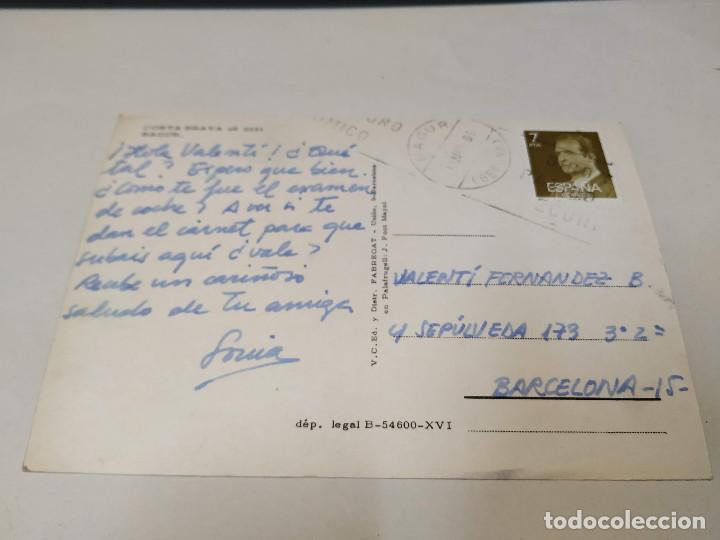 COSTA BRAVA
BAGUR.
¡Hola Valentí! ¿Qué
tal? Espero que bien.
¿Como te fue el examen
de coche? A ver si te
dan el carnet para que
subais aquí ¿vale?
Recibe un cariñoso
saludo de tu amiga
Sonia
V.C. Ed. y Distr. FABREGAT - Unión, 9-Barcelona
en Palafrugell: J. Font Mayol
dép. legal B-54600-XVI
BAGUR
7
PTA
ESPAÑA
VALENTÍ FERNANDEZ B.
SEPÚLVEDA 173 3º 2ª
BARCELONA-15-
todocoleccion
todocoleccion.net